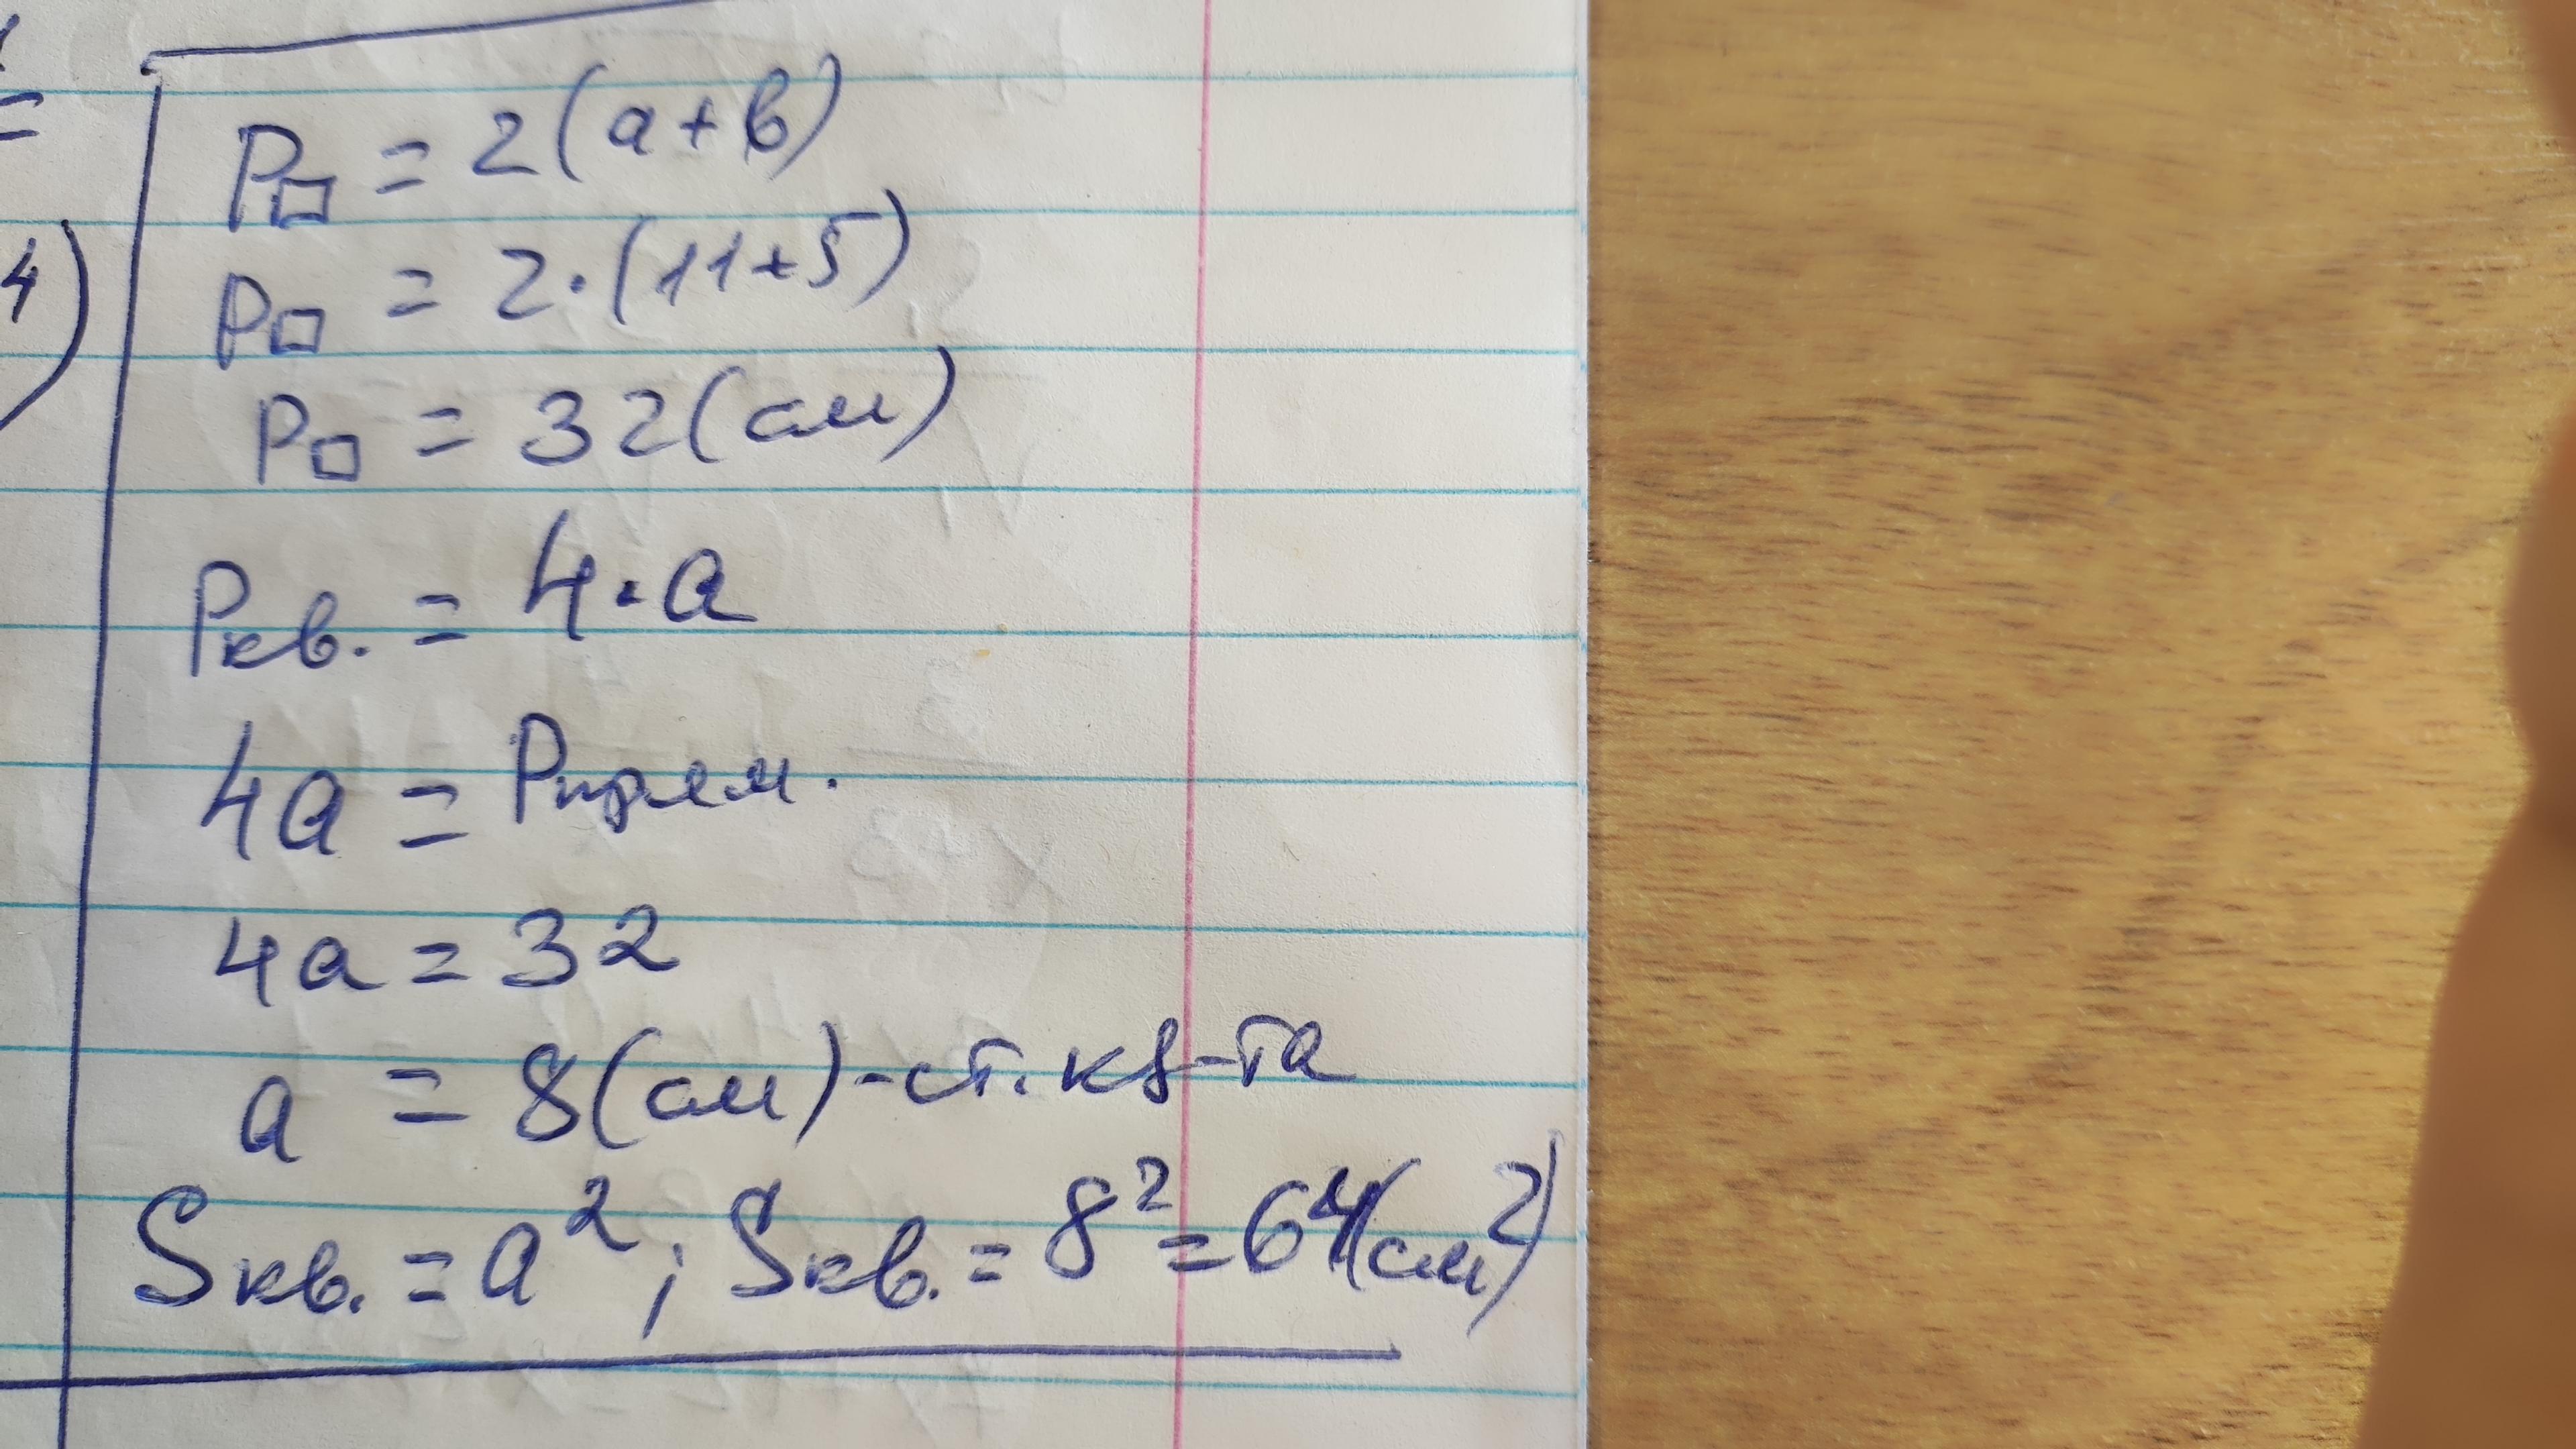 =
4)
P□ = 2(a+b)
P□ = 2·(11+5)
P□ = 32(см)
Pкв. = 4·a
4a = Pпрям.
4a = 32
a = 8(см)-ст.кв-та
Sкв. = a²; Sкв. = 8² = 64(см²)